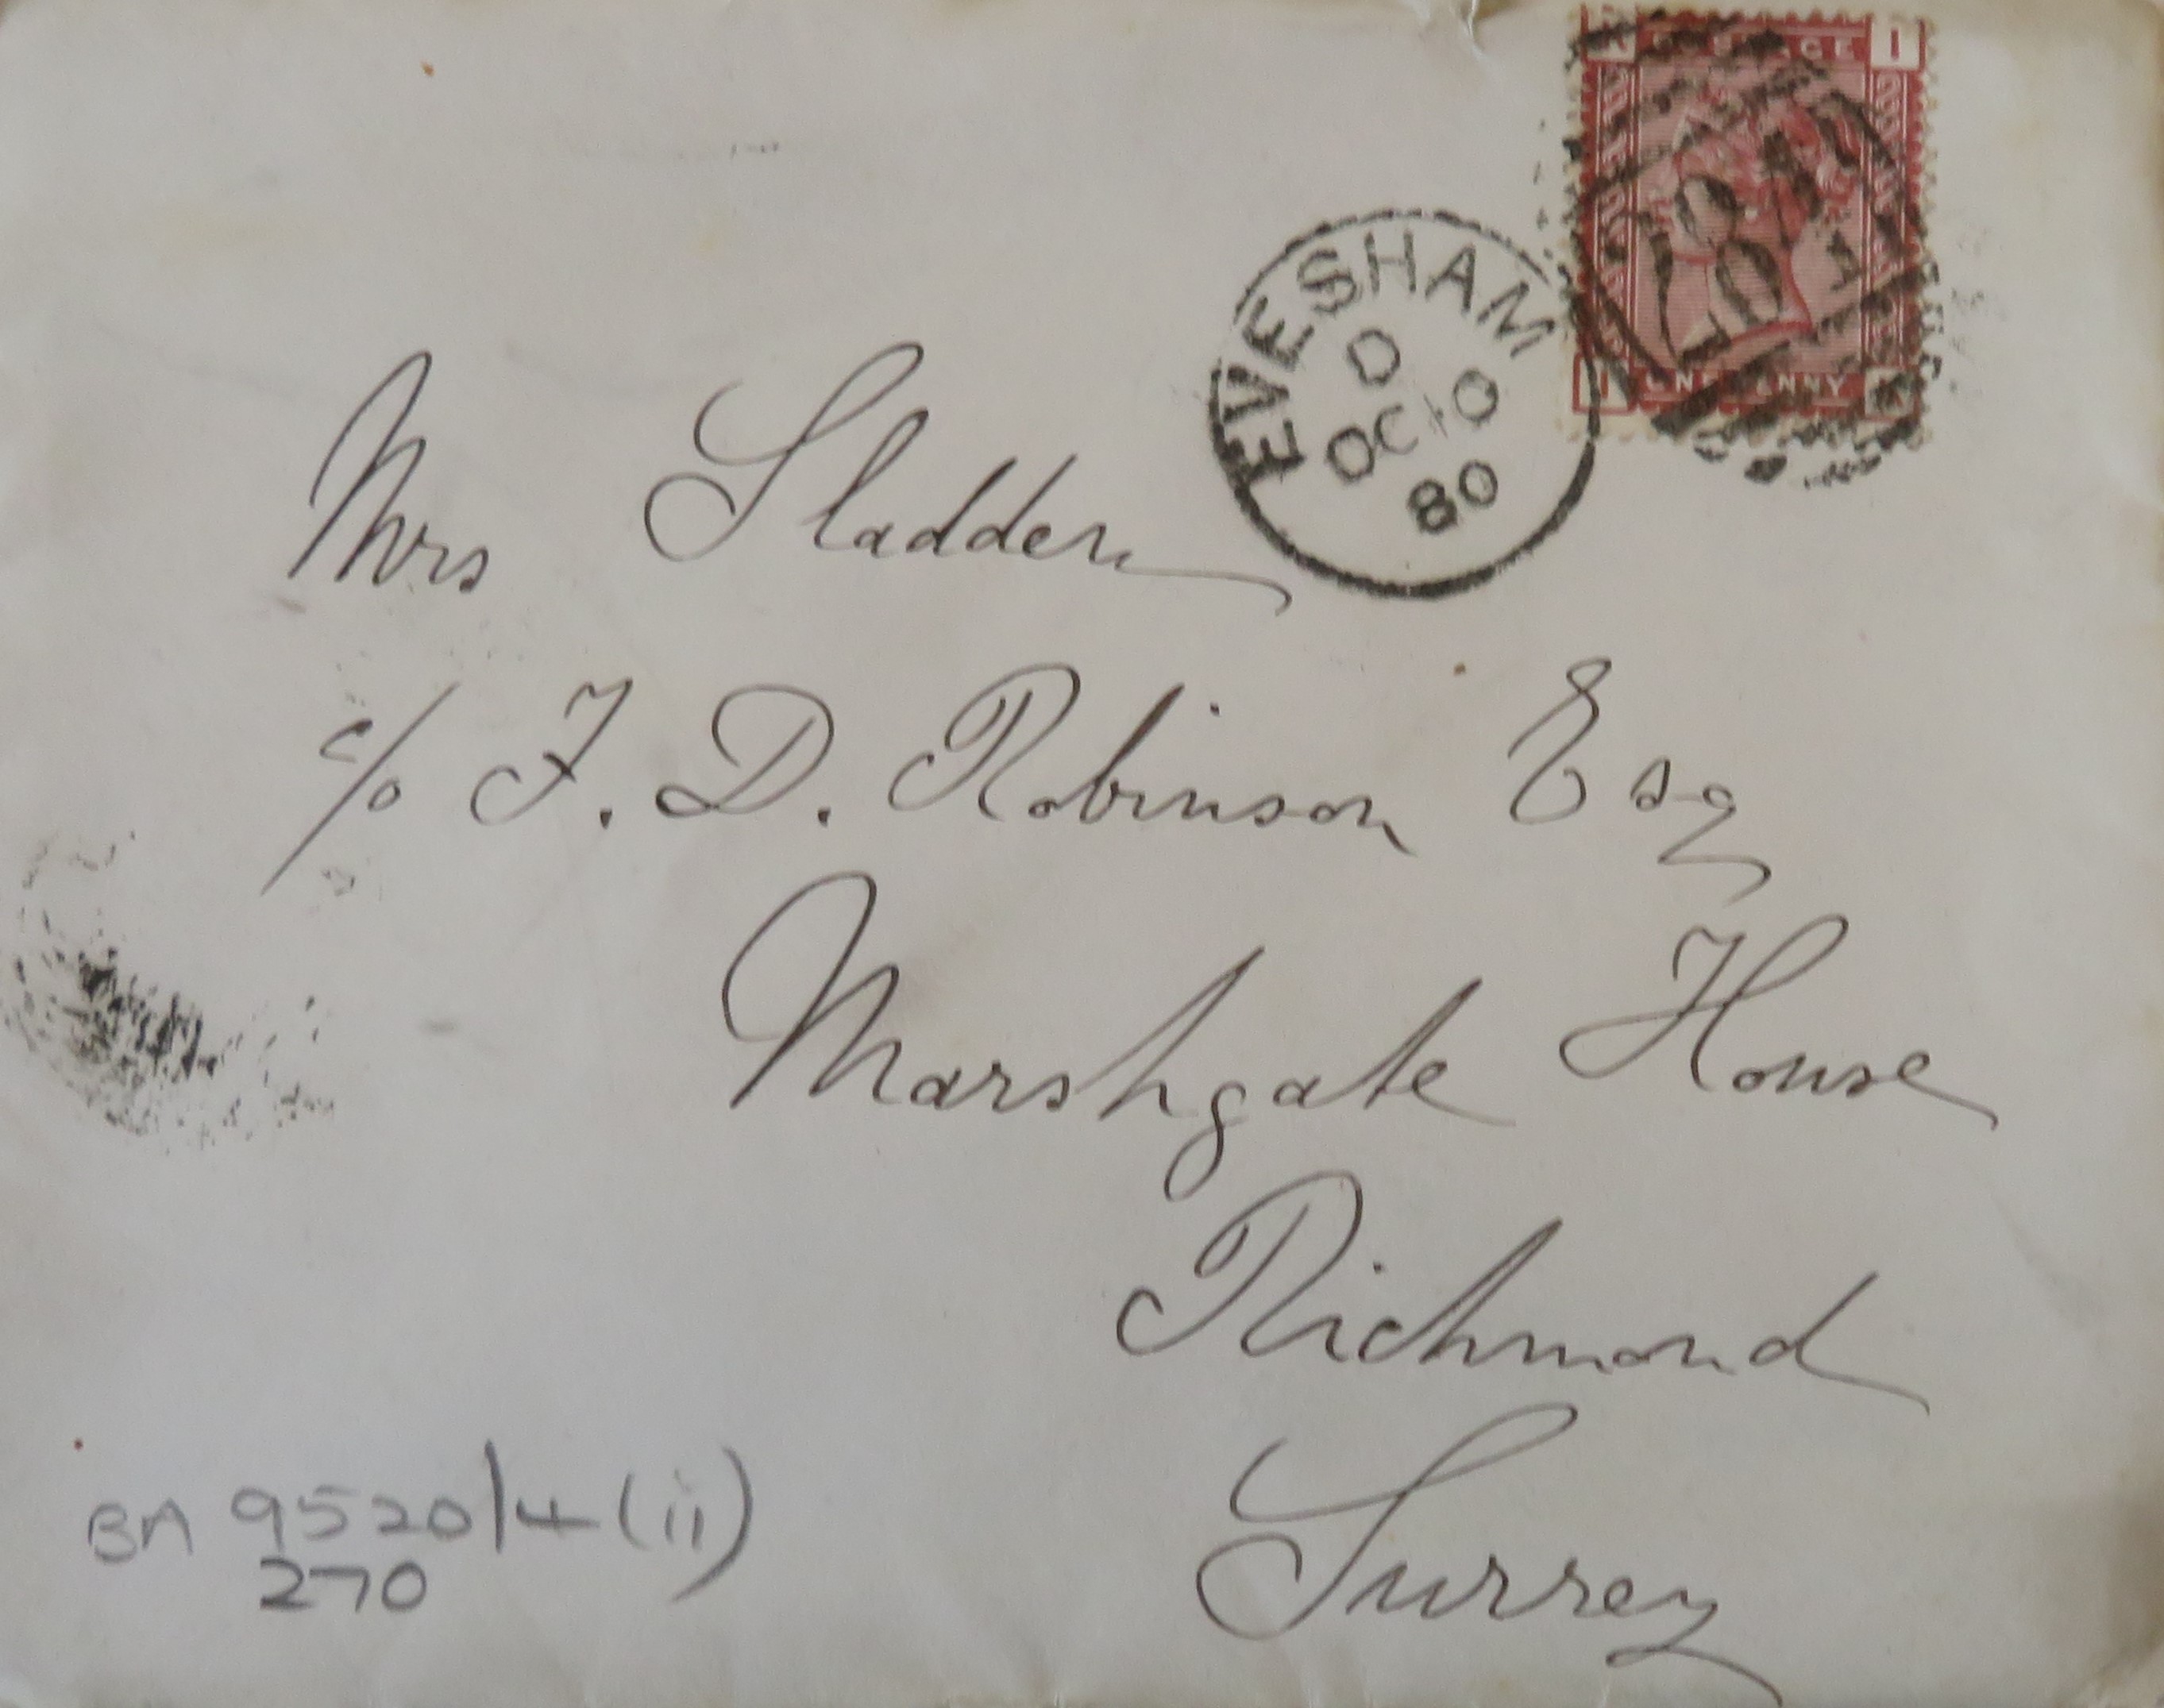 POSTAGE I
ONE PENNY
I
EVESHAM
D
OC 10
80
Mrs Sladden
c/o F. D. Robinson Esq
Marshgate House
Richmond
Surrey
BA 9520/4 (ii)
270